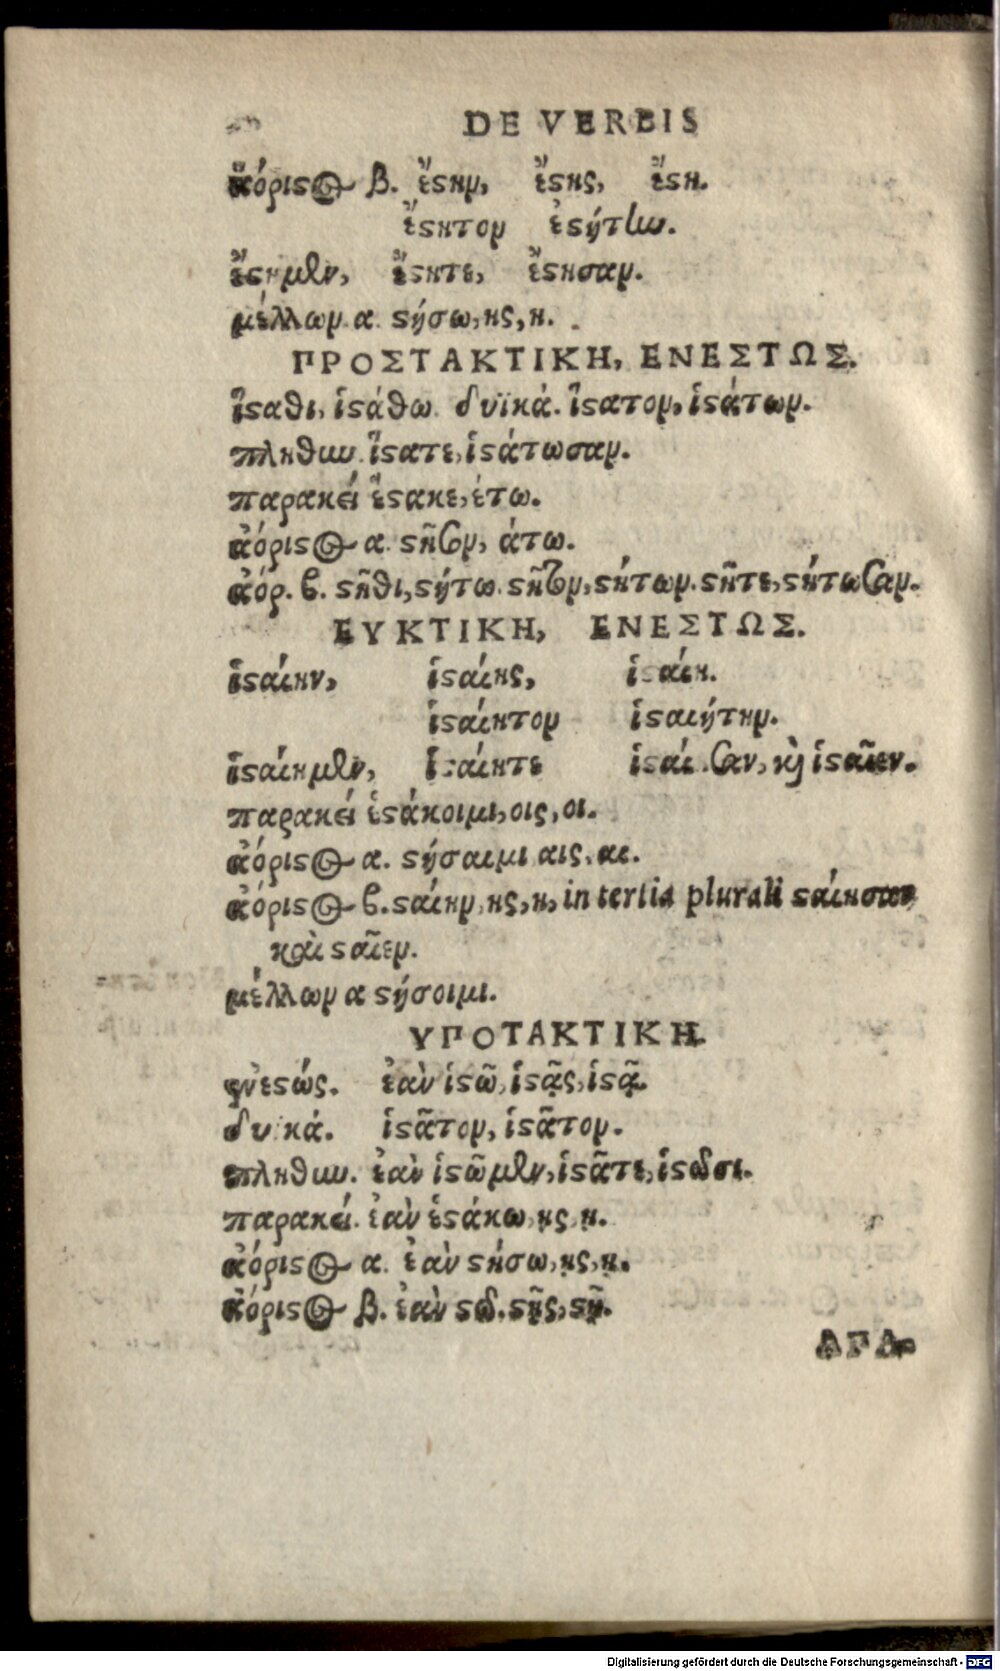 DE VERBIS
ἀόριστος β. ἔστην, ἔστης, ἔστη.
ἔστητον ἐστήτην.
ἔστημεν, ἔστητε, ἔστησαν.
μέλλων α στήσω, ης, η.
ΠΡΟΣΤΑΚΤΙΚΗ, ΕΝΕΣΤΩΣ.
ἵσταθι, ἱστάθω. δυϊκά. ἵστατον, ἱστάτων.
πληθυν. ἵστατε, ἱστάτωσαν.
παρακεί ἕστακε, έτω.
ἀόριστος α. στῆσον, άτω.
ἀόρ. β. στῆθι, στήτω. στῆτον, στήτων. στῆτε, στήτωσαν.
ΕΥΚΤΙΚΗ, ΕΝΕΣΤΩΣ.
ἱσταίην, ἱσταίης, ἱσταίη.
ἱσταίητον ἱσταιήτην.
ἱσταίημεν, ἱσταίητε ἱσταίησαν, καὶ ἱσταῖεν.
παρακεί ἑστάκοιμι, οις, οι.
ἀόριστος α. στήσαιμι αις, αι.
ἀόριστος β. σταίην, ης, η, in tertia plurali σταίησαν
καὶ σταῖεν.
μέλλων α στήσοιμι.
ΥΠΟΤΑΚΤΙΚΗ.
ἐνεστώς. ἐὰν ἱστῶ, ἱστᾷς, ἱστᾷ.
δυϊκά. ἱστᾶτον, ἱστᾶτον.
πληθυν. ἐὰν ἱστῶμεν, ἱστᾶτε, ἱστῶσι.
παρακεί. ἐὰν ἑστάκω, ῃς, ῃ.
ἀόριστος α. ἐὰν στήσω, ῃς, ῃ.
ἀόριστος β. ἐὰν στῶ. στῇς, στῇ.
Digitalisierung gefördert durch die Deutsche Forschungsgemeinschaft - DFG